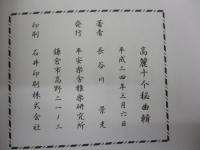 高麗十八秘曲輯
平成二四年三月六日
著者 長谷川 景光
発行 平安楽舎雅楽研究所
鎌倉市高野二一ノ三
印刷 石井印刷株式会社